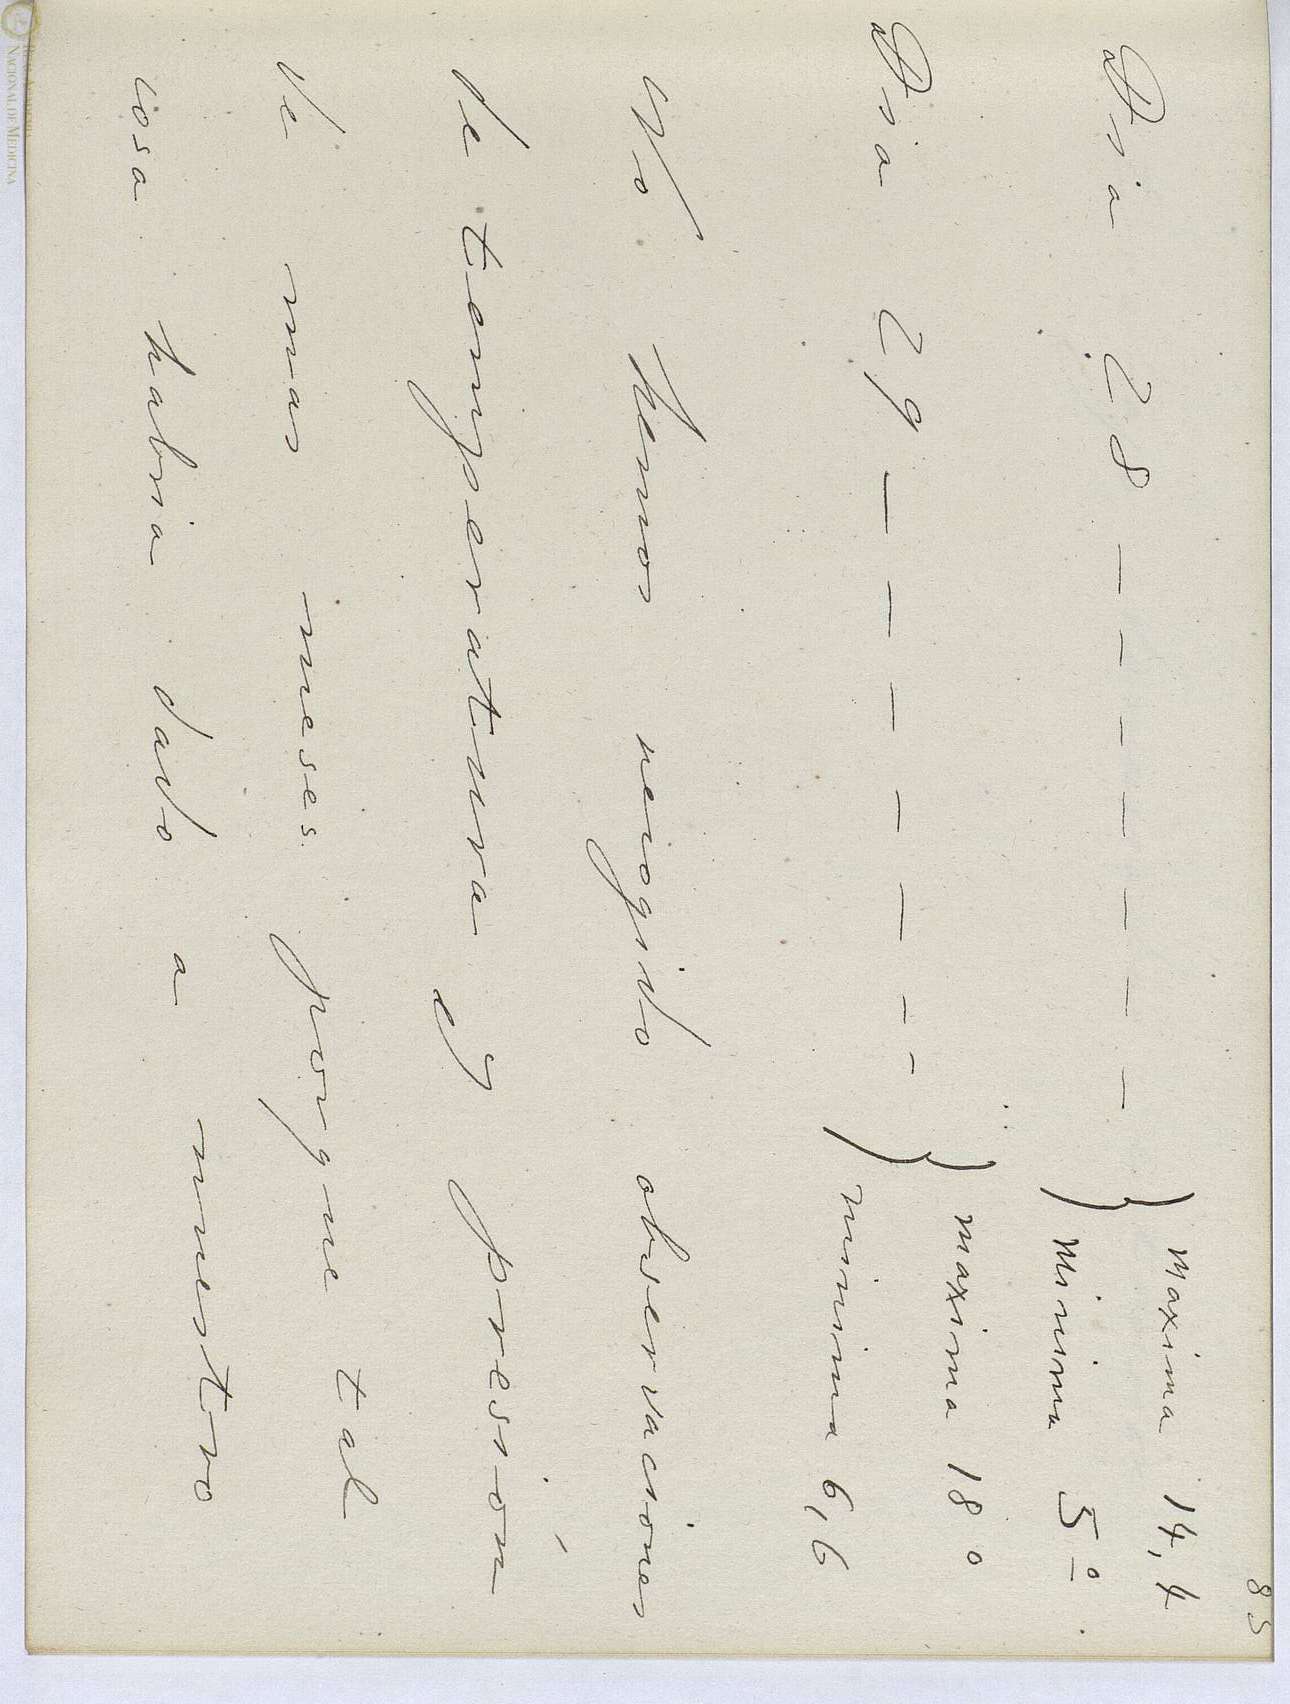 85
Dia 28 - - - - - - - } Maxima 14,4
Minima 5º
Dia 29 - - - - - - - } maxima 18º
minima 6,6
No hemos recogido observaciones
de temperatura y presión
de mas meses porque tal
cosa habria dado a nuestro
REAL ACADEMIA
NACIONAL DE MEDICINA